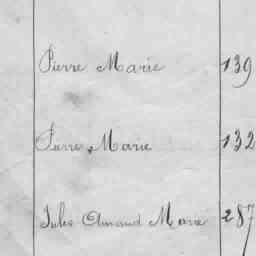 Pierre Marie 139
Pierre Marie 132
Jules Amand Marie 287